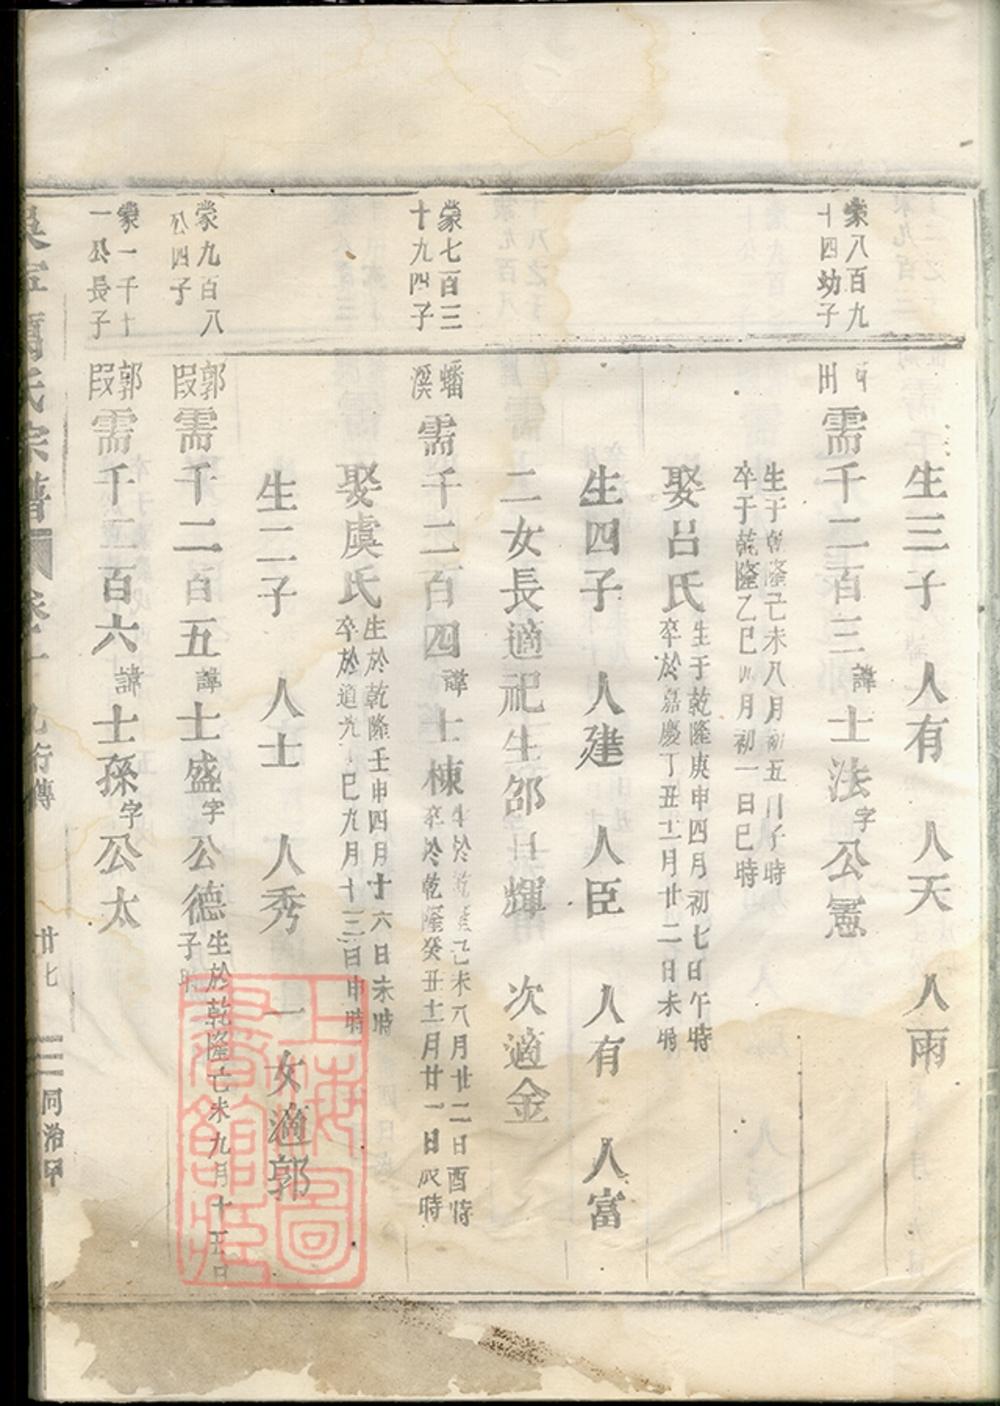 生三子 人有 人天 人雨
蒙八百九
十四幼子
田
需千二百三諱士法字公憲
生于乾隆己未八月初五日子時
卒于乾隆乙巳四月初一日巳時
娶呂氏
生于乾隆庚申四月初七日午時
卒於嘉慶丁丑十二月廿二日未時
生四子 人建 人臣 人有 人富
二女長適祀生邵日輝 次適金
蒙七百三
十九四子
蟠
溪
需千二百四諱士棟
生於乾隆己未八月廿二日酉時
卒於乾隆癸丑十二月廿一日辰時
娶虞氏
生於乾隆壬申四月十六日未時
卒於道光 巳九月十三日申時
生二子 人士 人秀 一女適郭
蒙九百八
公四子
郭
叚
需千二百五諱士盛字公德
生於乾隆己未九月十五日
子時
蒙一千十
一公長子
郭
叚
需千二百六諱士孫字公太
氏宗譜 卷十九行傳 廿七 同治甲
上海圖書館藏